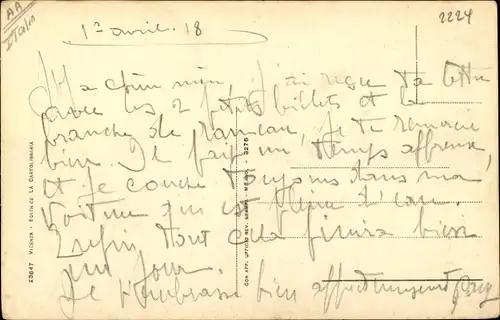 AA
Italn
1er avril. 18
2224
j'ai reçu ta lettre
avec les 2 petits billets et la
branche de je te remercie
bien. Il fait un temps affreux
et je couche toujours dans ma
voiture qui est pleine d'eau.
Enfin, tout cela finira bien
un jour.
Je t'embrasse bien affectueusement
23647 VICENZA - EDITRICE LA CARTOLIBRARIA
CON APP. UFFICIO REV. STAMPA 3276